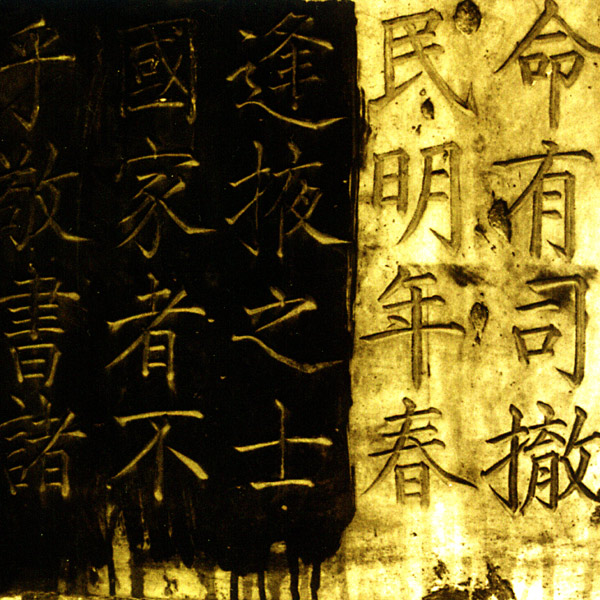 命有司撤
民明年春
逢掖之士
國家者不
乎敬書諸